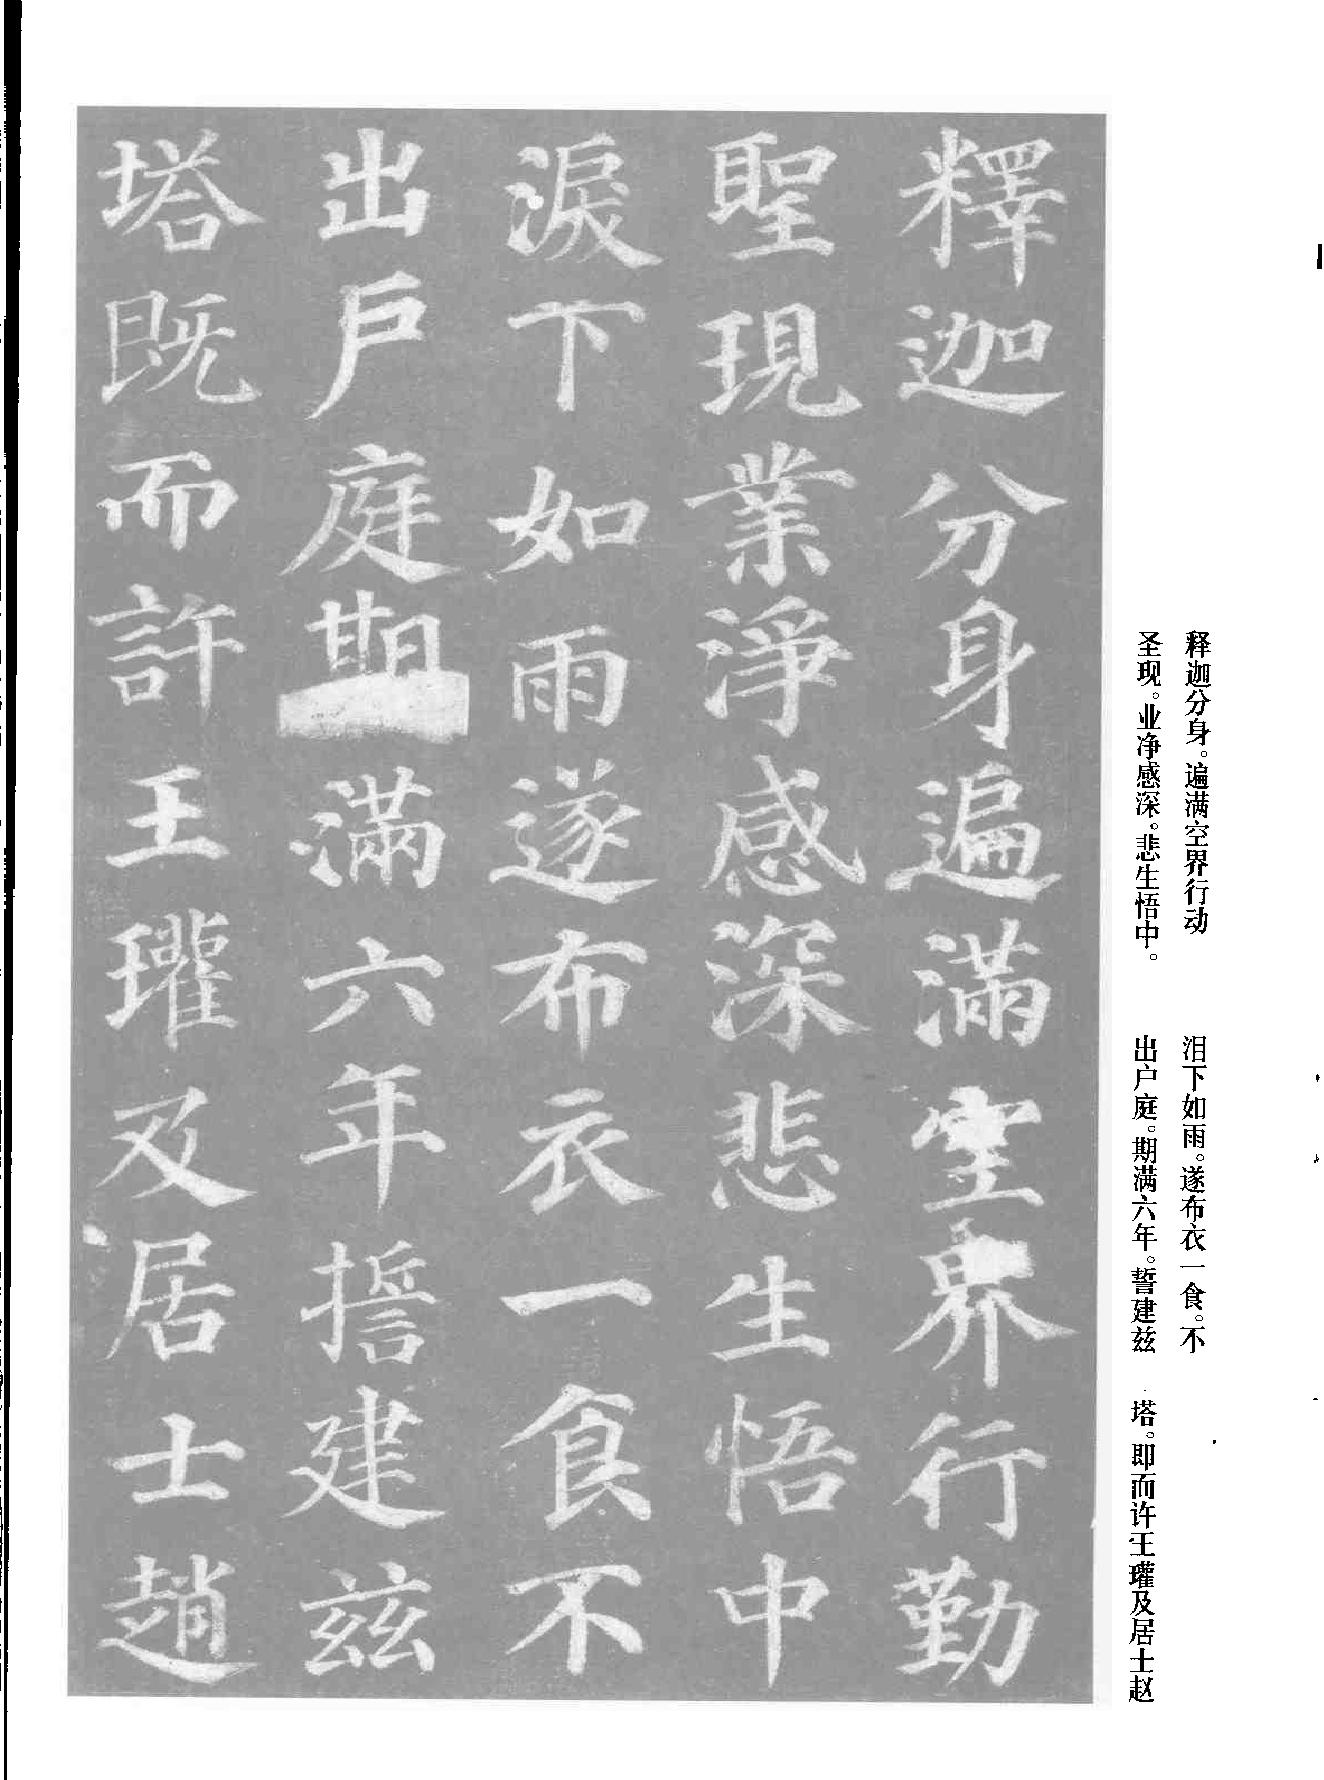 釋迦分身遍滿空界行勤
聖現業淨感深悲生悟中
淚下如雨遂布衣一食不
出戶庭期滿六年誓建兹
塔既而許王瓘及居士趙
释迦分身。遍满空界行动
圣现。业净感深。悲生悟中。
泪下如雨。遂布衣一食。不
出户庭。期满六年。誓建兹
塔。即而许王瓘及居士赵